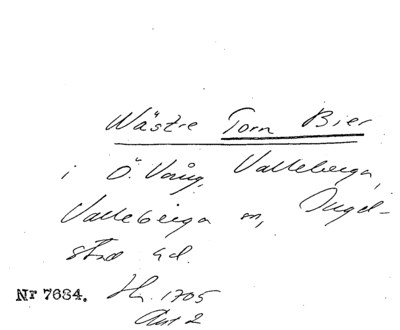 Wästre Torn Bier
i Ö. Vång, Valleberga,
Valleberga sn, Ingel-
stad hd.
Nr 7684. Hh. 1705
Akt 2